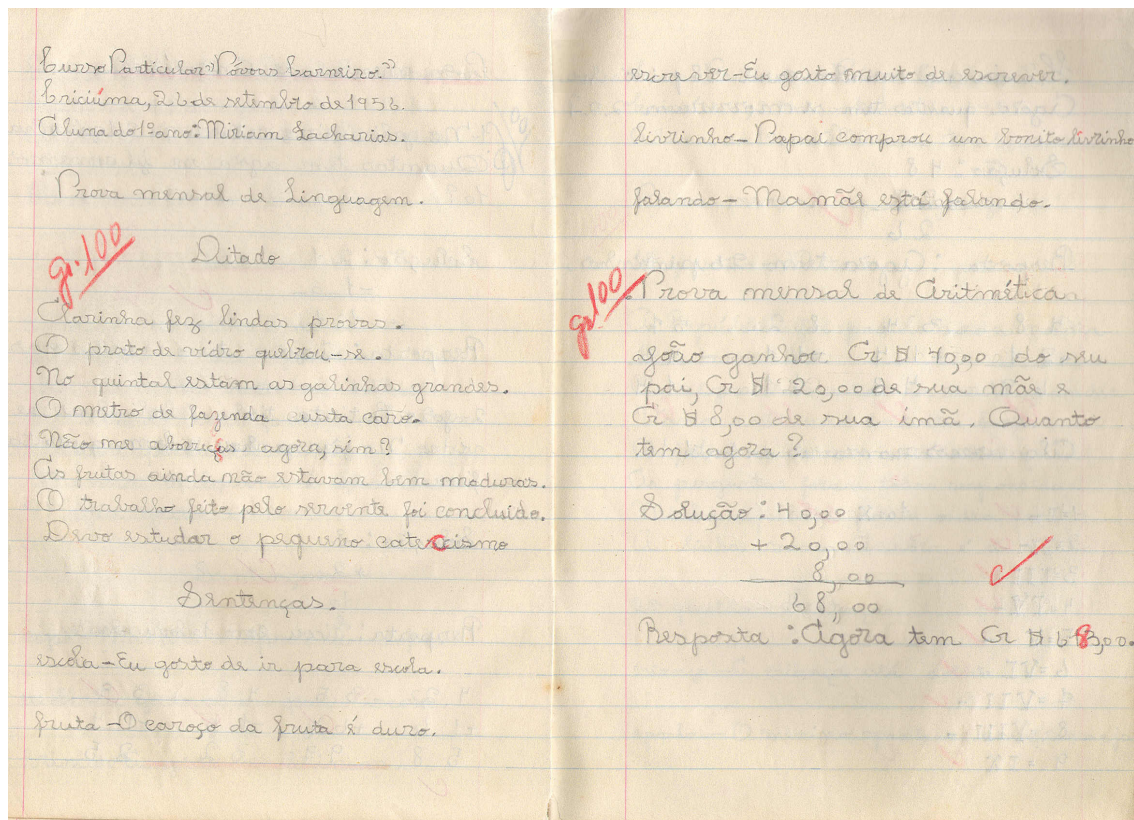 Curso Particular "Póvoas Carneiro."
Criciúma, 26 de setembro de 1956.
Aluna do 1º ano: Miriam Zacharias.
Prova mensal de Linguagem.
gr. 100
Ditado
Clarinha fez lindas provas.
O prato de vidro quebrou-se.
No quintal estam as galinhas grandes.
O metro de fazenda custa caro.
Não me aborreças agora, sim?
As frutas ainda não estavam bem maduras.
O trabalho feito pelo servente foi concluido.
Devo estudar o pequeno catecismo
Sentenças.
escola-Eu gosto de ir para escola.
fruta-O caroço da fruta é duro.
escrever-Eu gosto muito de escrever.
livrinho-Papai comprou um bonito livrinho
falando-Mamãe está falando.
gr 100
Prova mensal de Aritmética
João ganhou Cr $ 40,00 do seu
pai, Cr $ 20,00 de sua mãe e
Cr $ 8,00 de sua imã. Quanto
tem agora?
Solução: 40,00
+ 20,00
8,00
68,00
C
Resposta: Agora tem Cr $ 68,00.